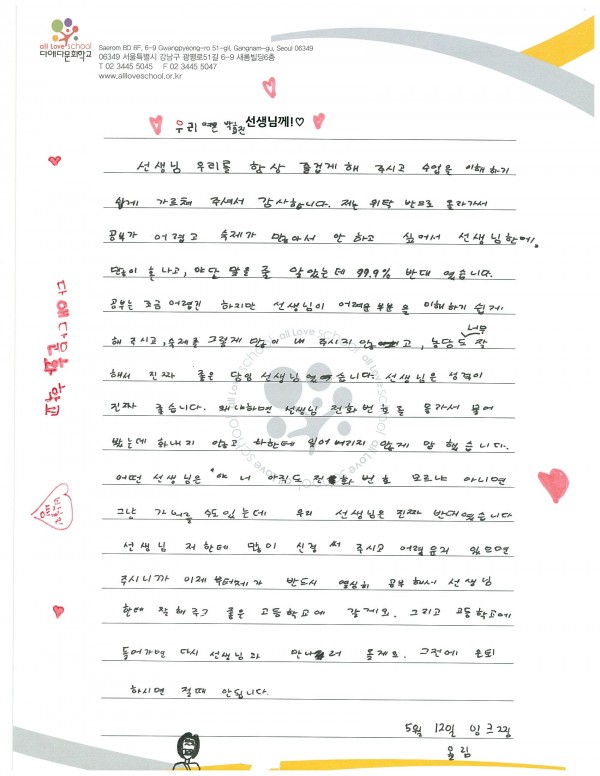 all Love school
다애다문화학교
Saerom BD 6F, 6-9 Gwangpyeong-ro 51-gil, Gangram-gu, Seoul 06349
06349 서울특별시 강남구 광평로51길 6-9 새롬빌딩6층
T 02 3445 5045 F 02 3445 5047
www.allloveschool.or.kr
우리 예쁜 선생님께!♡
선생님 우리를 항상 즐겁게 해 주시고 수업을 이해하기
쉽게 가르쳐 주셔서 감사합니다. 저는 위탁 반으로 올라가서
공부가 어렵고 숙제가 많아서 안 하고 싶어서 선생님한테
많이 혼나고, 야단 맞을 줄 알았는데 99.9% 반대 였습니다.
공부는 조금 어렵긴 하지만 선생님이 어려운 부분을 이해하기 쉽게
해 주시고, 숙제를 그렇게 많이 내 주시지 않고, 농담도 너무 잘
해서 진짜 좋은 담임 선생님 였습니다. 선생님은 성격이
진짜 좋습니다. 왜냐하면 선생님 전화번호를 몰라서 물어
봤는데 화내지 않고 저한테 잃어버리지 않게 말 했습니다.
어떤 선생님은 "야 너 아직도 전화 번호 모르냐 아니면
그냥 가 수도있는데 우리 선생님은 진짜 반대였습니다
선생님 저한테 많이 신경 써 주시고 어렵운지 있으면
주시니까 이제 부터 제가 반드시 열심히 공부해서 선생님
한테 잘 해주고 좋은 고등학교에 갈게요. 그리고 고등학교에
들어가면 다시 선생님과 만나러 올게요. 그전에 은퇴
하시면 절때 안됩니다.
5월 12일
올림
다애다문화 학교
all Love school